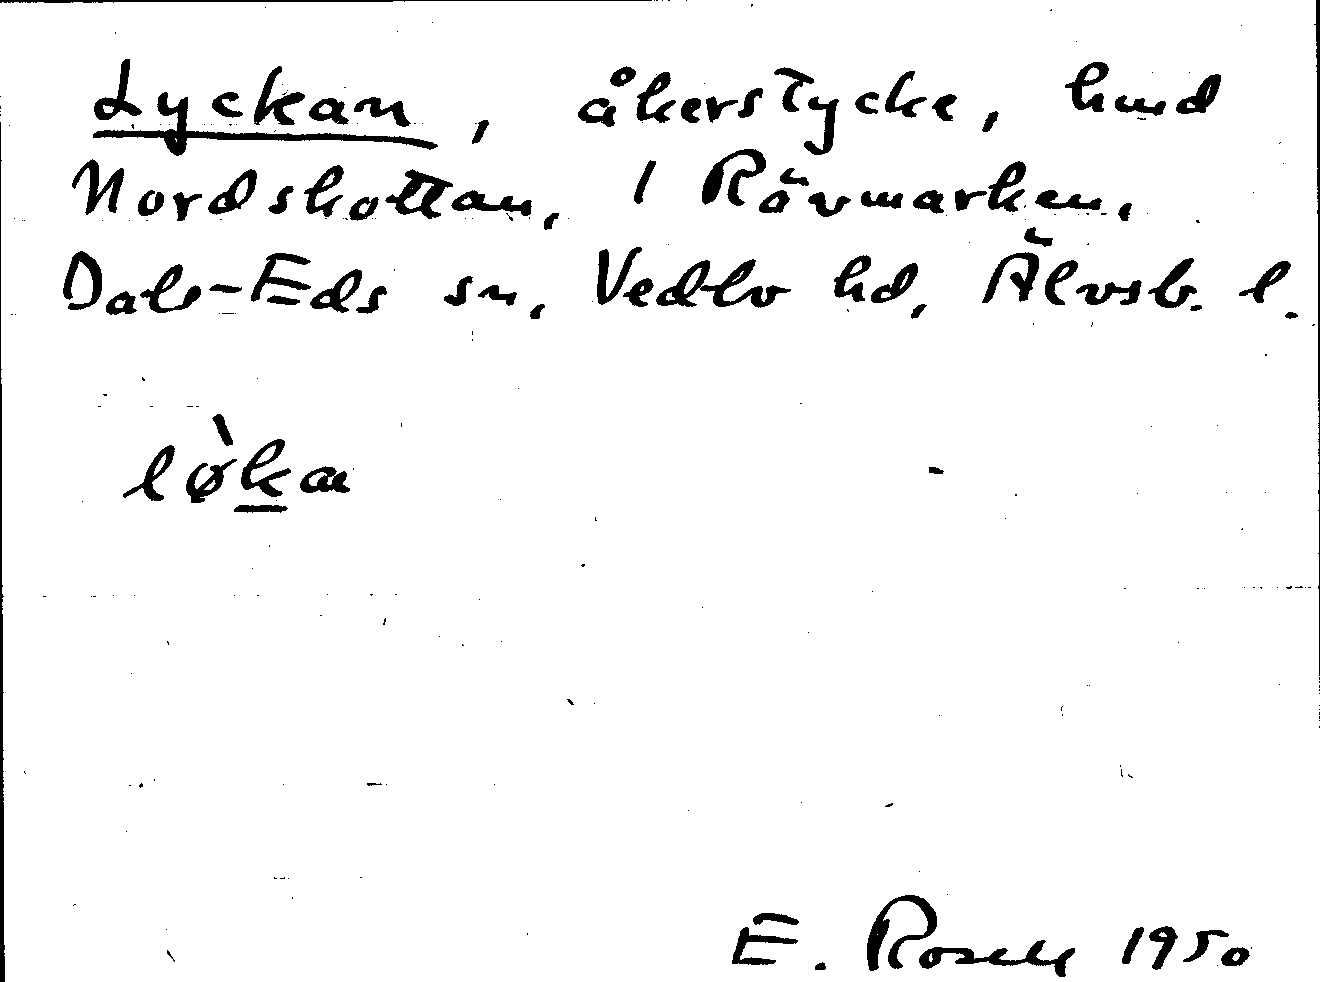 Lyckan, åkerstycke, hmd
Nordskottan, 1 Rävmarken,
Dals-Eds sn, Vedbo hd, Älvsb. l.
lø̀kan
E. Rosell 1950